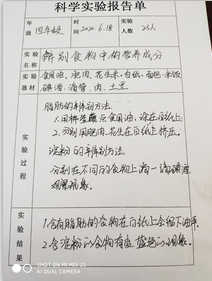 科学实验报告单
年级 四年级 时间 2020.6.18 实验人数 25人
实验名称 辨别食物中的营养成分
实验器材 食用油、肥肉、花生米、白纸、面包、米饭
碘酒、滴管、肉、土豆
实验过程
脂肪的辨别方法
1.用筷子蘸点食用油,涂在白纸上
2.分别用肥肉、花生在白纸上挤压。
淀粉的辨别方法
分别在不同的食物上滴一滴碘酒
观察现象。
实验结果
1.含有脂肪的食物在白纸上会留下油渍。
2.含淀粉的食物有变蓝色的现象。
SHOT ON MI MIX 2S
AI DUAL CAMERA